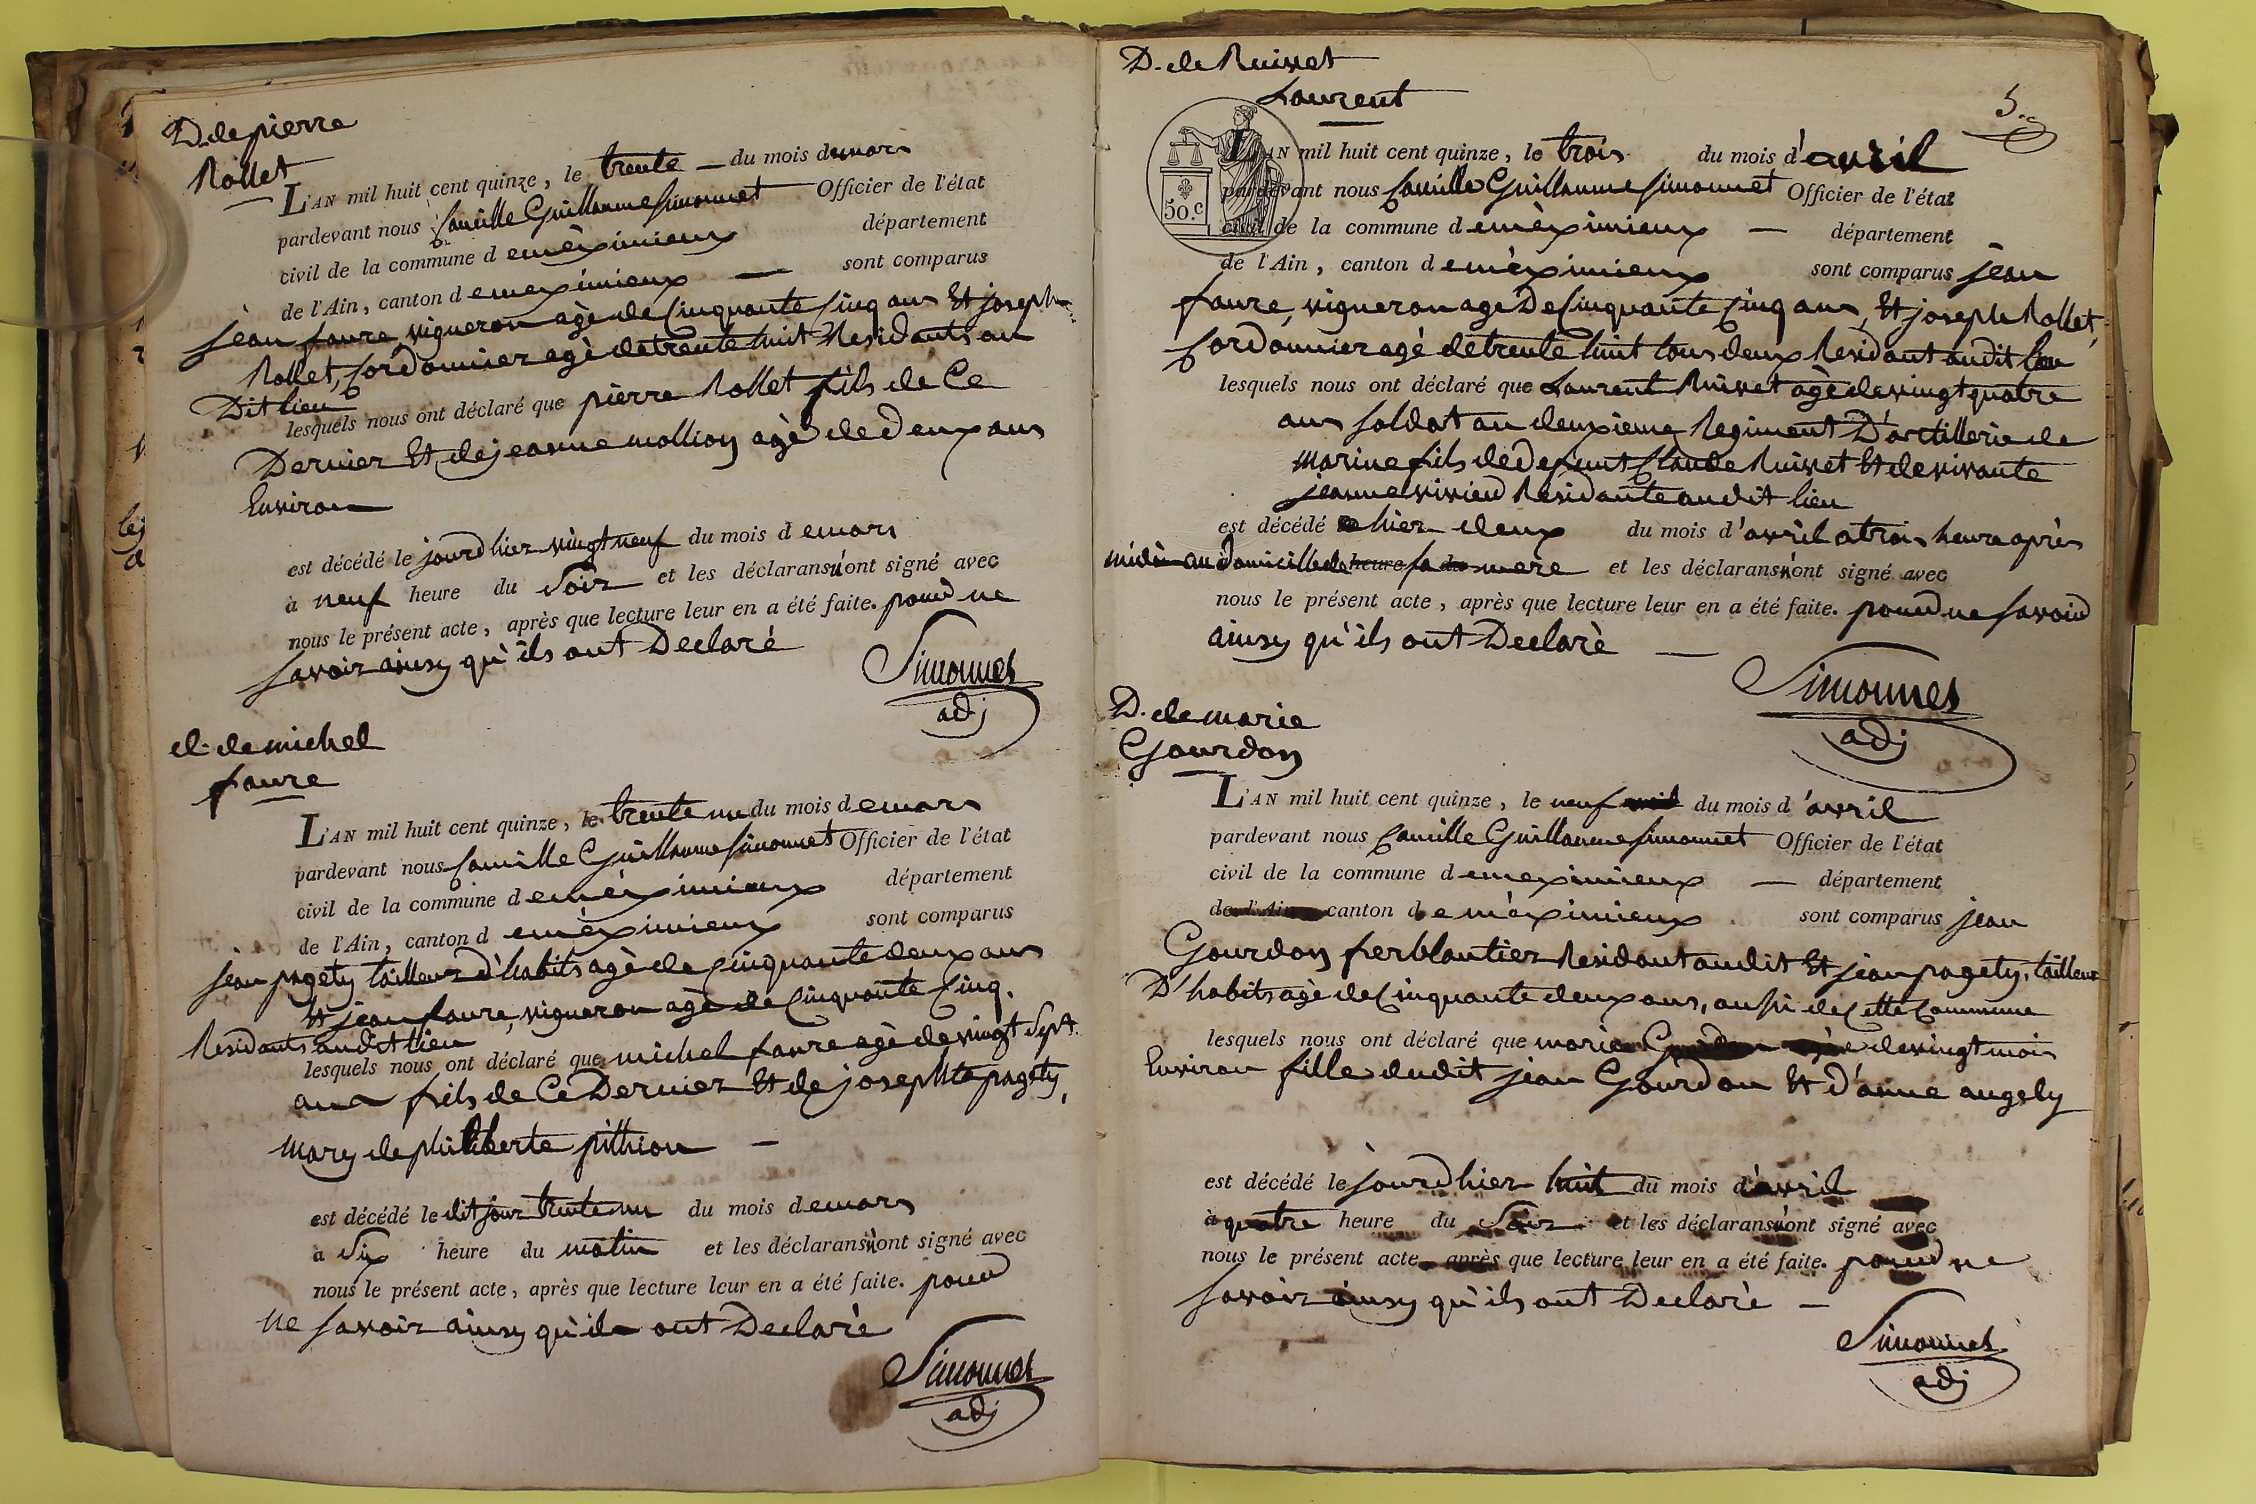 D. de pierre
Rollet
L'AN mil huit cent quinze, le trente — du mois de mars
pardevant nous Camille Guillaume Simonnet Officier de l'état
civil de la commune d emèximieux département
de l'Ain, canton d emeximieux — sont comparus
jean faure, vigneron agè de Cinquante Cinq ans Et joseph
Rollet, Cordonnier agè de trente huit Residants au
Dit lieu
lesquels nous ont déclaré que pierre Rollet fils de Ce
Dernier Et de jeanne mollion agè de deux ans
Environ
est décédé le jourd hier vingt neuf du mois d emars
à neuf heure du Soir et les déclarans n'ont signé avec
nous le présent acte, après que lecture leur en a été faite. pour ne
savoir ainsy qu'ils ont Declaré
Simonnet
adj
d. de michel
faure
L'AN mil huit cent quinze, le trente un du mois d emars
pardevant nous Camille Guillaume Simonnet Officier de l'état
civil de la commune d emèximieux département
de l'Ain, canton d emèximieux sont comparus
jean pagety tailleur d'habits agè de Cinquante deux ans
Et jean faure, vigneron agè de Cinquante Cinq.
Residants audit lieu
lesquels nous ont déclaré que michel faure agè de vingt Sept
ans fils de Ce Dernier Et de josephte pagety,
mary de philiberte pithion —
est décédé le dit jour trente un du mois d emars
à Six heure du matin et les déclarans n'ont signé avec
nous le présent acte, après que lecture leur en a été faite. pour
ne savoir ainsy qu'ils ont Declarè
Simonnet
adj
D. de Ruivet
Laurent
5.e
50.c
L'AN mil huit cent quinze, le trois du mois d'avril
pardevant nous Camille Guillaume Simonnet Officier de l'état
civil de la commune d emèximieux — département
de l'Ain, canton d emèximieux sont comparus jean
faure, vigneron age De Cinquante Cinq ans, Et joseph Rollet,
Cordonnier agè de trente huit tous deux Residant audit lieu
lesquels nous ont déclaré que Laurent Ruivet agè de vingt quatre
ans soldat au deuxieme Regiment D'artillerie de
marine fils de defunt Claude Ruivet Et de vivante
jeanne vivien Residante audit lieu
est décédé hier deux du mois d'avril a trois heure après
midi au domicille de heure sa du mere et les déclarans n'ont signé avec
nous le présent acte, après que lecture leur en a été faite. pour ne savoir
ainsy qu'ils ont Declarè —
Simonnet
adj
D. de marie
Gourdon
L'AN mil huit cent quinze, le neuf du mois d'avril
pardevant nous Camille Guillaume Simonnet Officier de l'état
civil de la commune d emeximieux — département
de l'Ain canton d e mèximieux sont comparus jean
Gourdon ferblantier Residant audit Et jean pagety, tailleur
D'habits agè de Cinquante deux ans, aussi de Cette Commune
lesquels nous ont déclaré que marie Gourdon agèe de vingt mois
Environ fille dudit jean Gourdon Et d'anne angely
est décédé le jourd hier huit du mois d'avril
à quatre heure du Soir et les déclarans n'ont signé avec
nous le présent acte après que lecture leur en a été faite. pour ne
savoir ainsy qu'ils ont Declarè —
Simonnet
adj